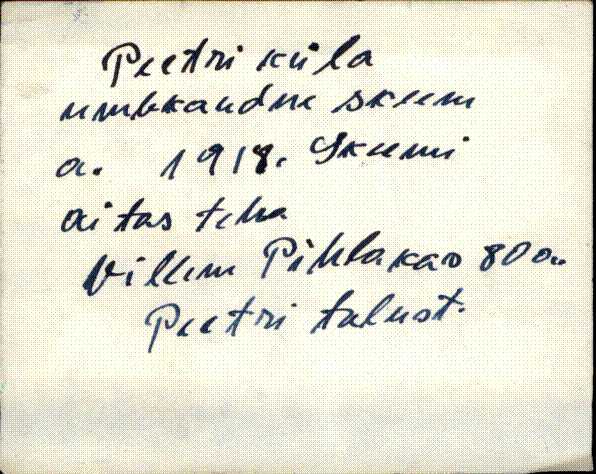 Peetri küla
umbkaudne skeem
a. 1918. Skeemi
aitas teha
Villem Pihlakas 80 a.
Peetri talust.